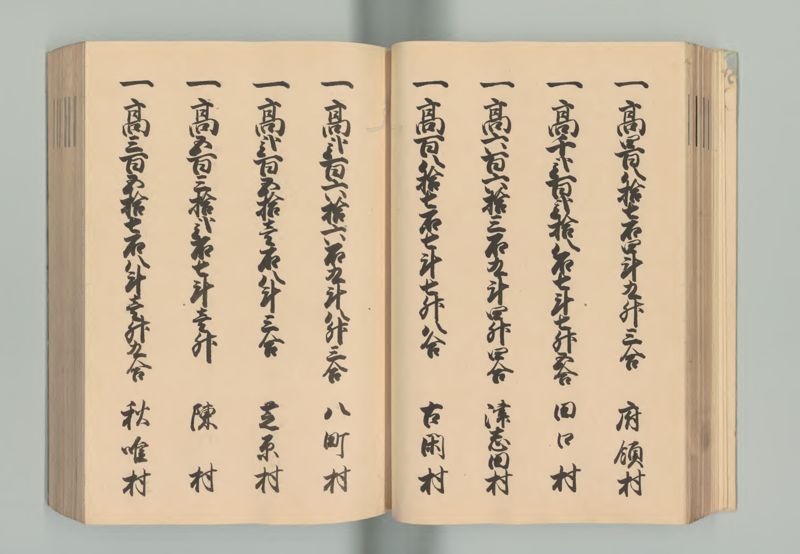 一高四百八拾七石四斗九升三合 府領村
一高千弐百弐拾八石七斗七升五合 田口村
一高六百六拾三石五斗四升四合 津志田村
一高百八拾七石七斗七升八合 古閑村
一高弐百六拾六石五斗八升三合 八町村
一高弐百五拾壱石八斗三合 芝原村
一高五百三拾弐石七斗壱升 陳村
一高三百五拾七石八斗壱升五合 秋唯村